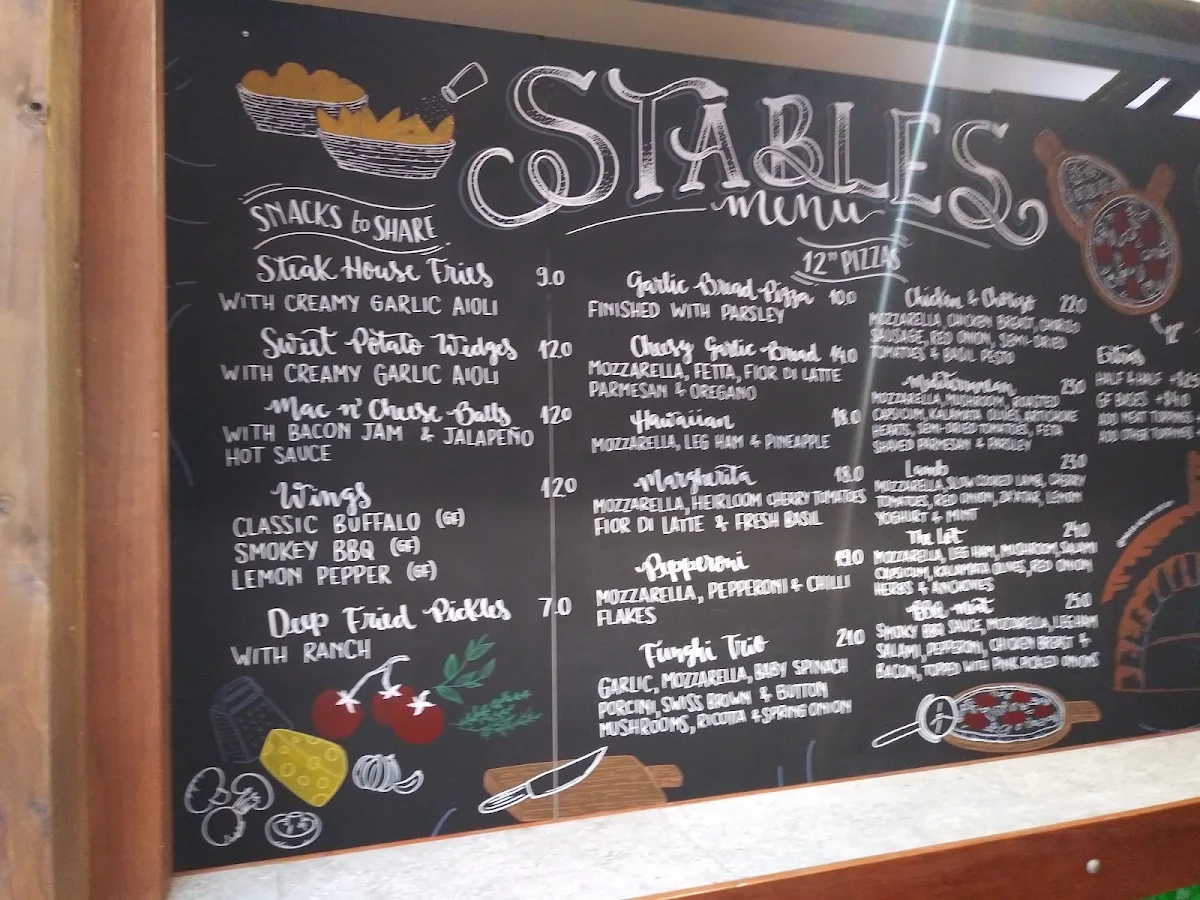 STABLES
menu
SNACKS to SHARE
Steak House Fries 9.0
WITH CREAMY GARLIC AIOLI
Sweet Potato Wedges 12.0
WITH CREAMY GARLIC AIOLI
Mac n' Cheese Balls 12.0
WITH BACON JAM & JALAPEÑO
HOT SAUCE
Wings 12.0
CLASSIC BUFFALO (GF)
SMOKEY BBQ (GF)
LEMON PEPPER (GF)
Deep Fried Pickles 7.0
WITH RANCH
12" PIZZAS
Garlic Bread Pizza 10.0
FINISHED WITH PARSLEY
Cheesy Garlic Bread 14.0
MOZZARELLA, FETTA, FIOR DI LATTE
PARMESAN & OREGANO
Hawaiian 18.0
MOZZARELLA, LEG HAM & PINEAPPLE
Margherita 18.0
MOZZARELLA, HEIRLOOM CHERRY TOMATOES
FIOR DI LATTE & FRESH BASIL
Pepperoni 19.0
MOZZARELLA, PEPPERONI & CHILLI
FLAKES
Funghi Trio 21.0
GARLIC, MOZZARELLA, BABY SPINACH
PORCINI, SWISS BROWN & BUTTON
MUSHROOMS, RICOTTA & SPRING ONION
Chicken & Chorizo 22.0
MOZZARELLA, CHICKEN BREAST, CHORIZO
SAUSAGE, RED ONION, SEMI-DRIED
TOMATOES & BASIL PESTO
Mediterranean 23.0
MOZZARELLA, MUSHROOM, ROASTED
CAPSICUM, KALAMATA OLIVES, ARTICHOKE
HEARTS, SEMI-DRIED TOMATOES, FETA
SHAVED PARMESAN & PARSLEY
Lamb 23.0
MOZZARELLA, SLOW COOKED LAMB, CHERRY
TOMATOES, RED ONION, ZA'ATAR, LEMON
YOGHURT & MINT
The Lot 24.0
MOZZARELLA, LEG HAM, MUSHROOM, SALAMI
CAPSICUM, KALAMATA OLIVES, RED ONION
HERBS & ANCHOVIES
BBQ Meat 25.0
SMOKY BBQ SAUCE, MOZZARELLA, LEG HAM
SALAMI, PEPPERONI, CHICKEN BREAST &
BACON, TOPPED WITH PINK PICKLED ONIONS
12"
Extras
HALF & HALF
GF BASES +$4.0
ADD MEAT TOPPING
ADD OTHER TOPPINGS